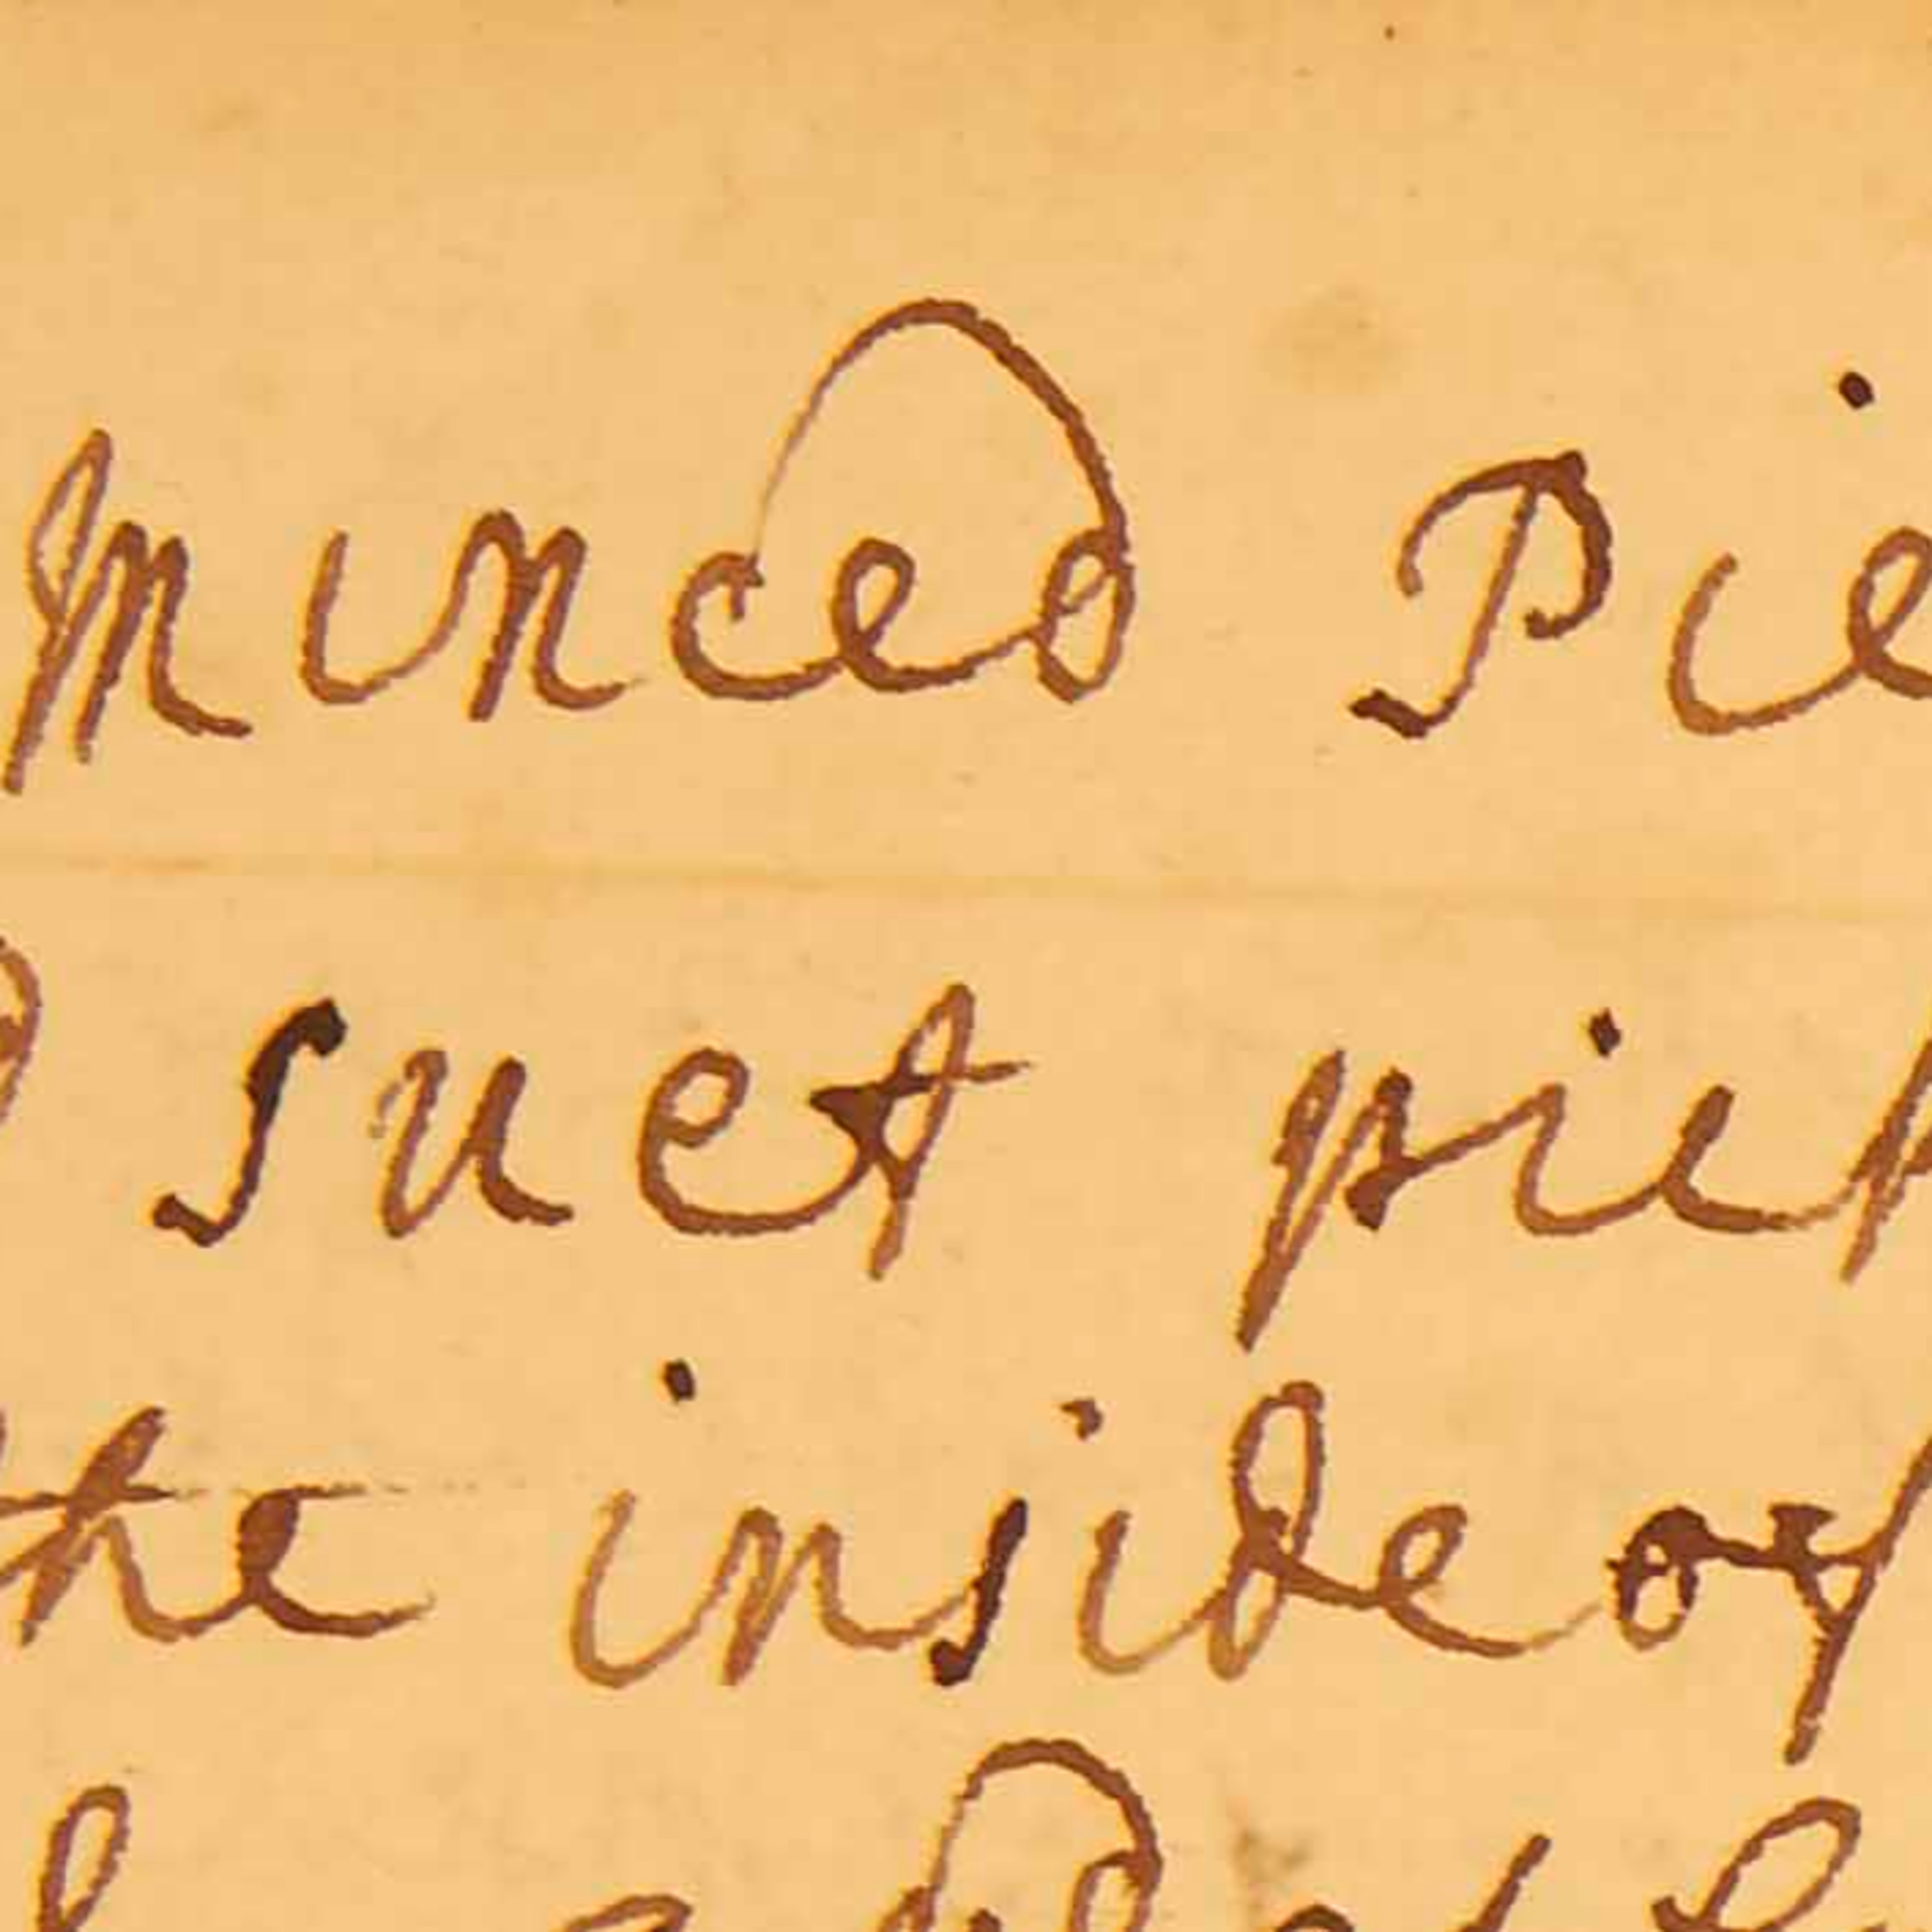 Minced Pie
suet pick
the inside of